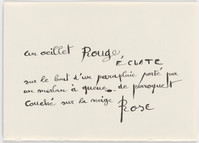 un oeillet Rouge
ÉCLATE
sur le bout d'un parapluie porté par
un merlan à queue de perroquet
couché sur la neige
Rose